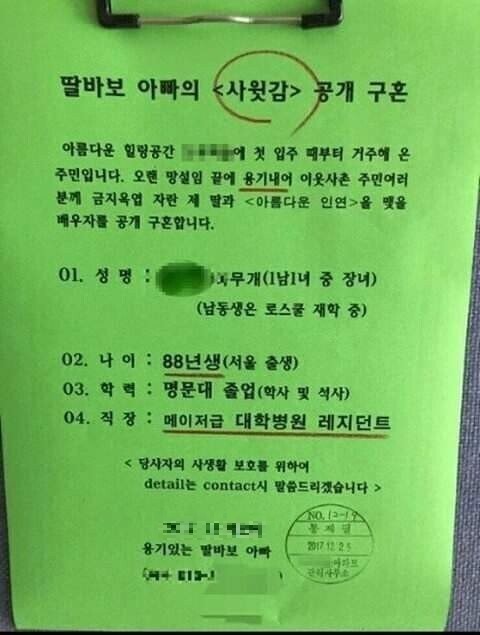 딸바보 아빠의 <사윗감> 공개 구혼
아름다운 힐링공간 에 첫 입주 때부터 거주해 온
주민입니다. 오랜 망설임 끝에 용기내어 이웃사촌 주민여러
분께 금지옥엽 자란 제 딸과 <아름다운 인연>을 맺을
배우자를 공개 구혼합니다.
01. 성 명 : 무개(1남1녀 중 장녀)
(남동생은 로스쿨 재학 중)
02. 나 이 : 88년생(서울 출생)
03. 학 력 : 명문대 졸업(학사 및 석사)
04. 직 장 : 메이저급 대학병원 레지던트
< 당사자의 사생활 보호를 위하여
detail는 contact시 말씀드리겠습니다 >
용기있는 딸바보 아빠
NO. 12-19
통제필
2017.12.25
아파트
관리사무소